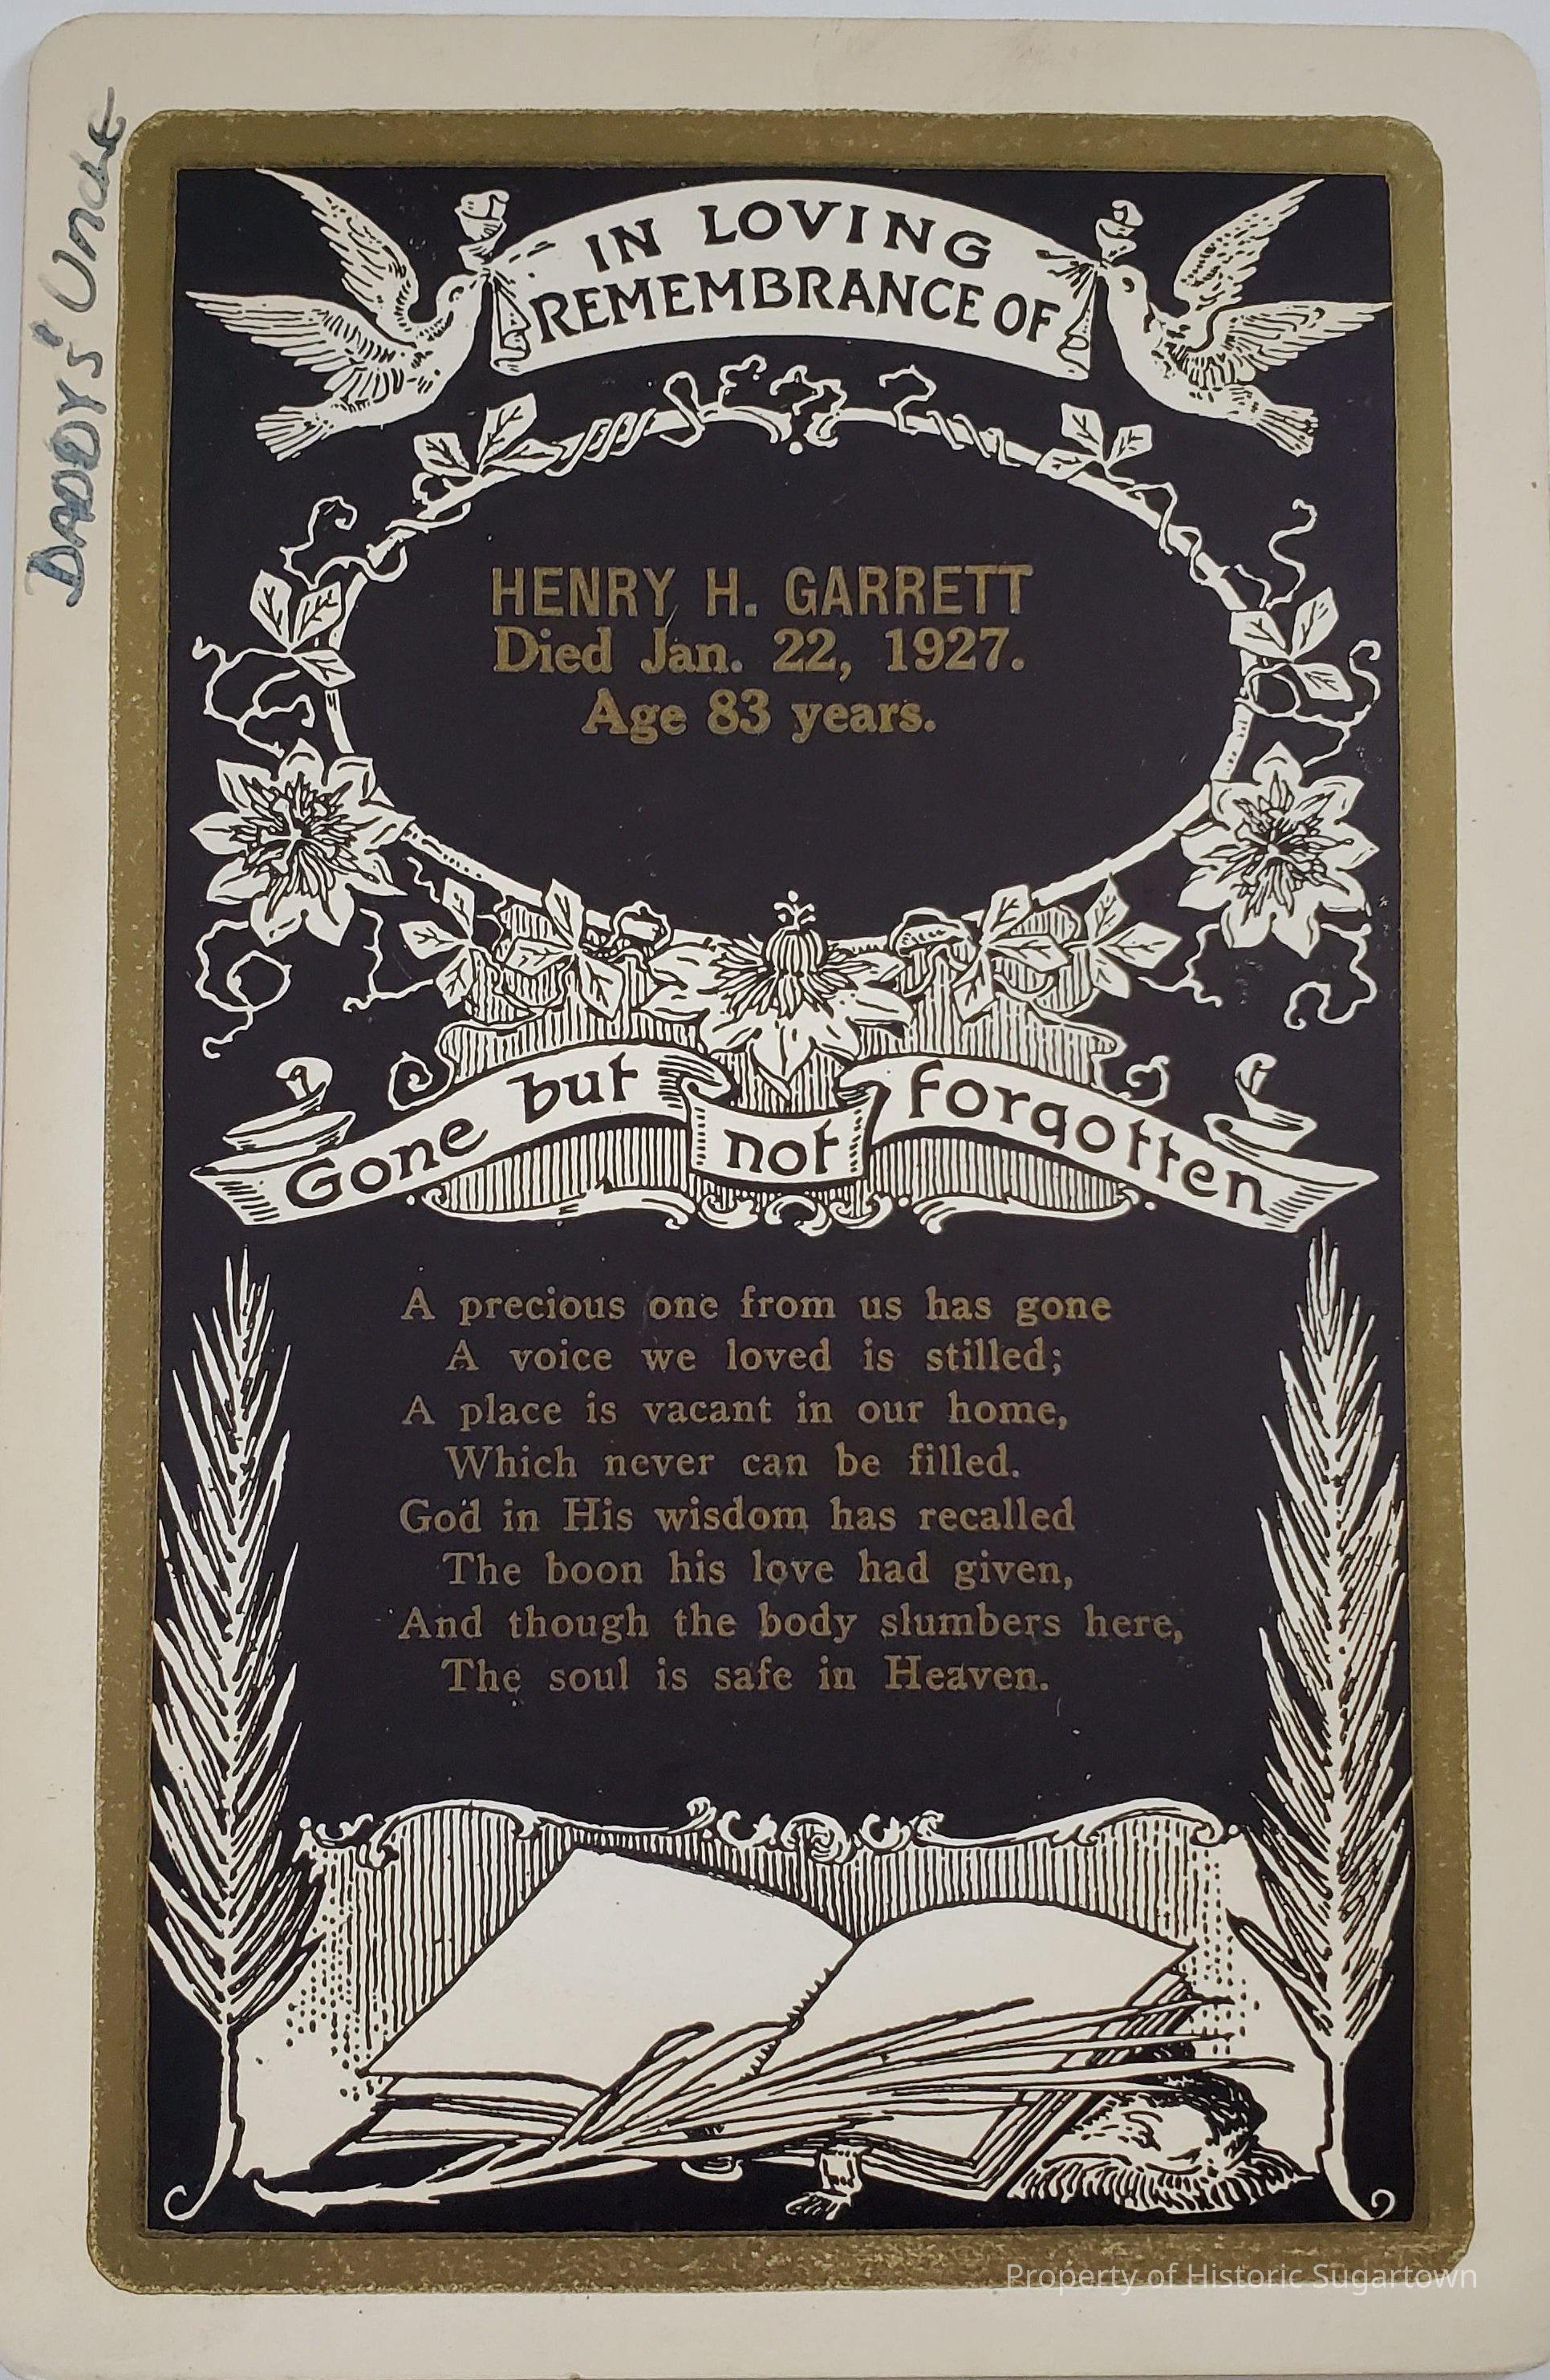 DADDY's' Uncle
IN LOVING
REMEMBRANCE OF
HENRY H. GARRETT
Died Jan. 22, 1927.
Age 83 years.
Gone but not forgotten
A precious one from us has gone
A voice we loved is stilled;
A place is vacant in our home,
Which never can be filled.
God in His wisdom has recalled
The boon his love had given,
And though the body slumbers here,
The soul is safe in Heaven.
Property of Historic Sugartown